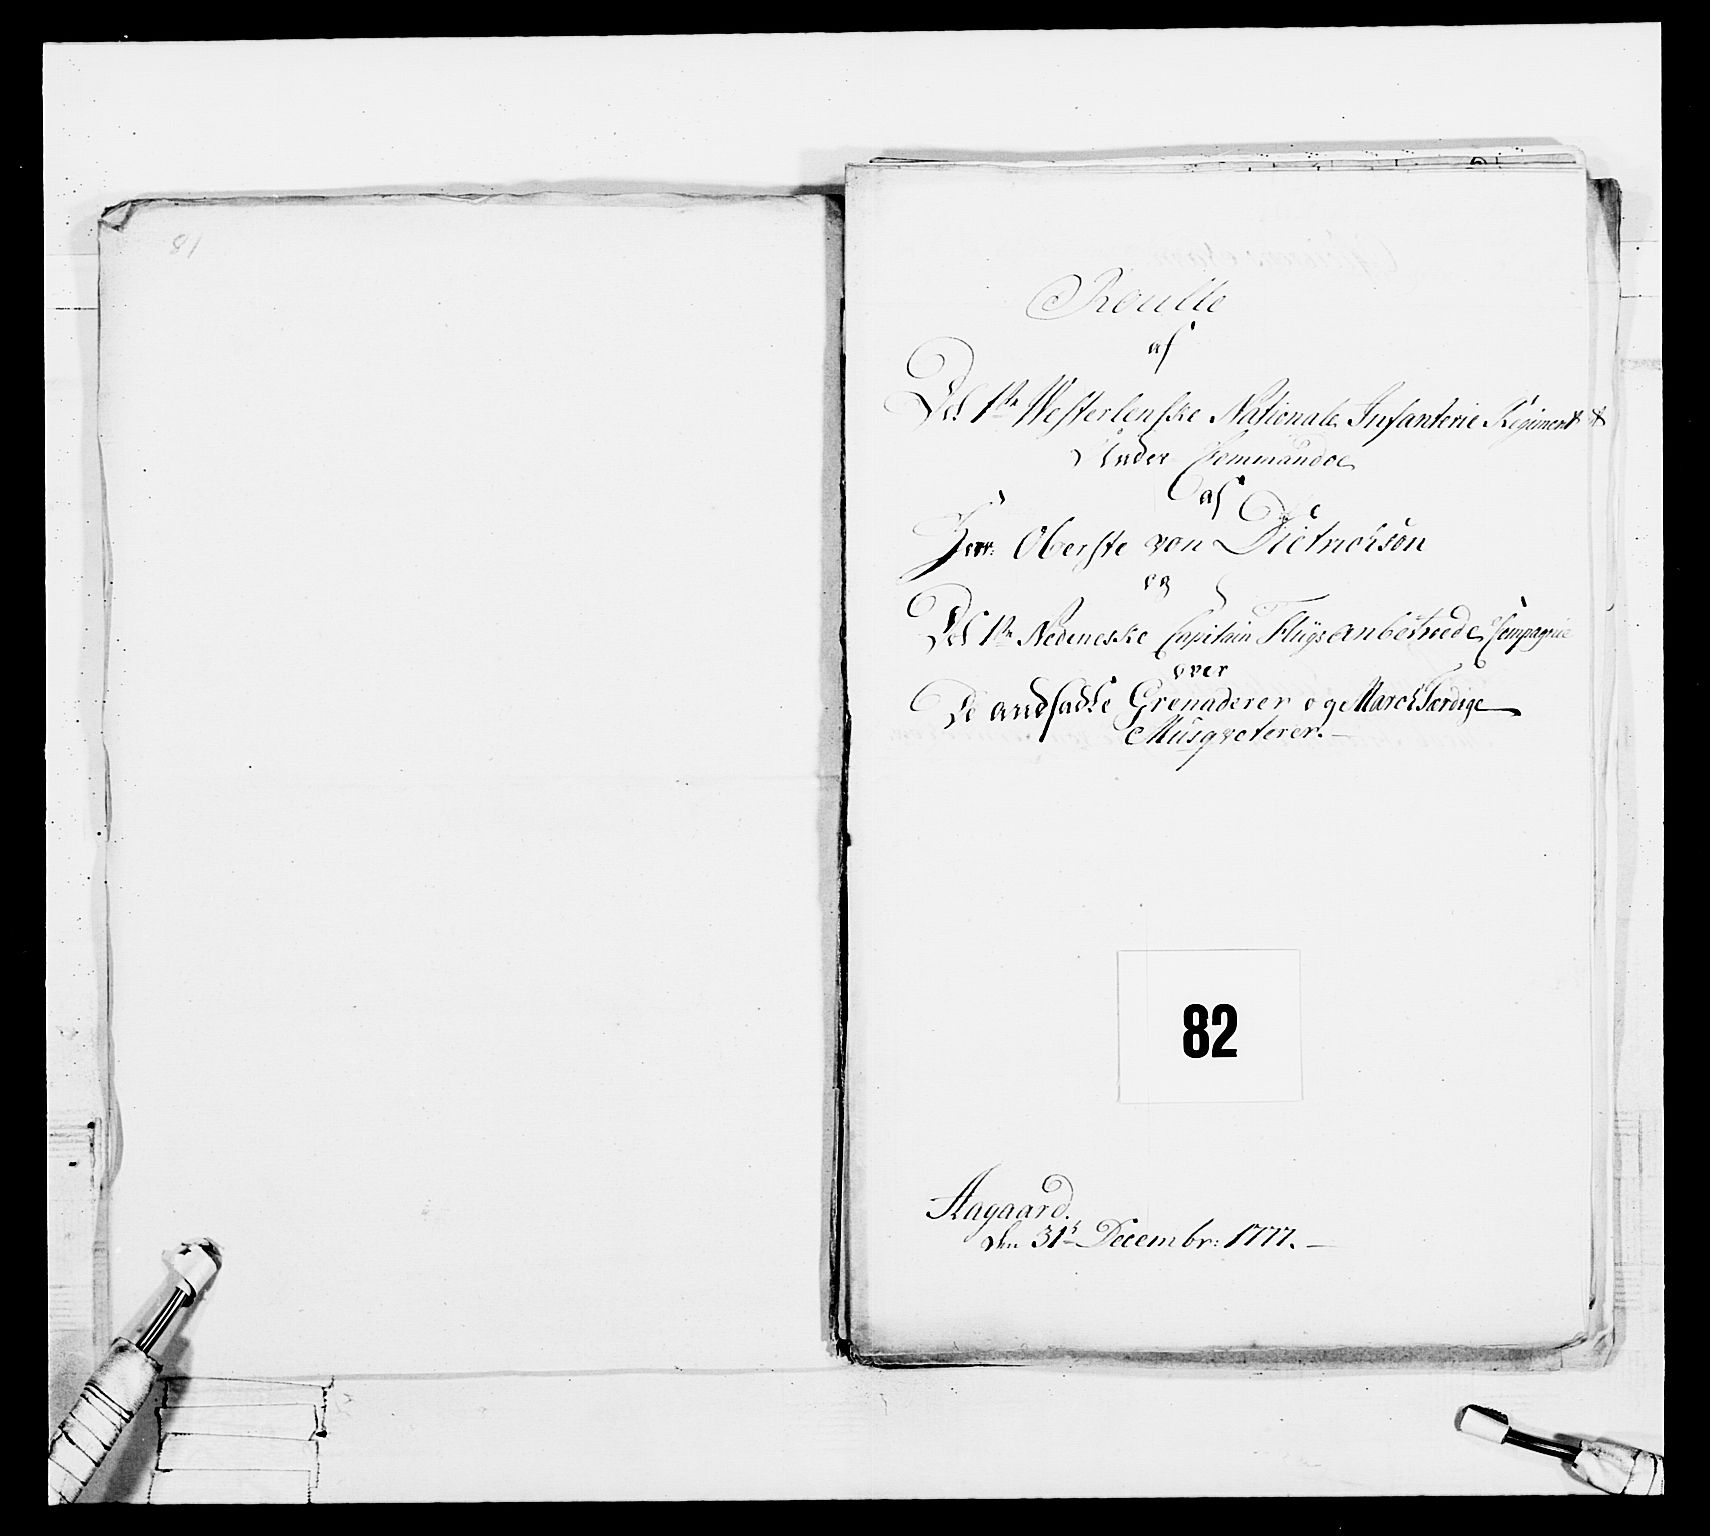 81
Roulle
af
Det 1te Westerlenske Nationale Infanterie Regiment
Under Commandoe
af
Herr Oberste von Dietrichson
og
Det 1te Nedeneske Capitain Flügs anbetroede Compagnie
over
De andsadte Grenaderer og March færdige
Musqveterer.
82
Aagaard
den 31t Decembr: 1777.